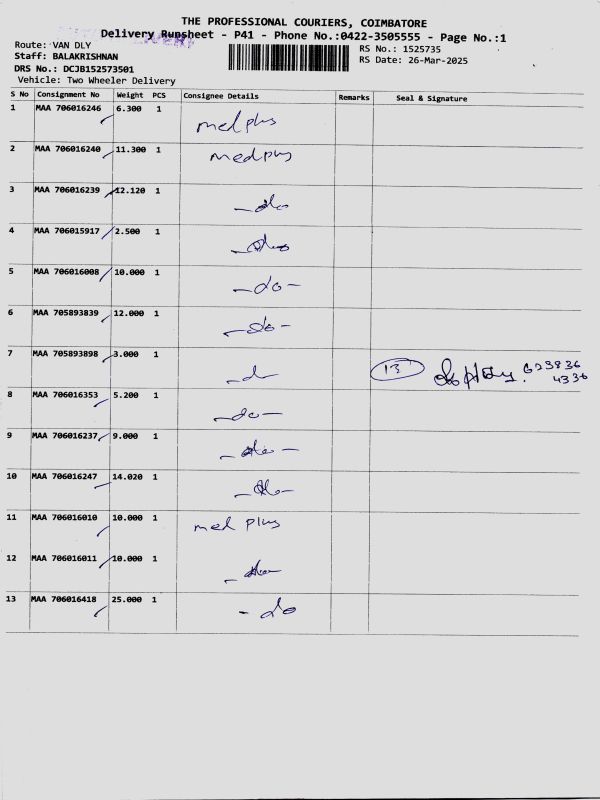 THE PROFESSIONAL COURIERS, COIMBATORE
Delivery Runsheet - P41 - Phone No.:0422-3505555 - Page No.:1
Route: VAN DLY
RS No.: 1525735
Staff: BALAKRISHNAN
RS Date: 26-Mar-2025
DRS No.: DCJB152573501
Vehicle: Two Wheeler Delivery
S No Consignment No Weight PCS Consignee Details Remarks Seal & Signature
1 MAA 706016246 6.300 1 medplus
2 MAA 706016240 11.300 1 medplus
3 MAA 706016239 12.120 1 -do
4 MAA 706015917 2.500 1 -do
5 MAA 706016008 10.000 1 -do-
6 MAA 705893839 12.000 1 -do-
7 MAA 705893898 3.000 1 -d- 13 623836
4336
8 MAA 706016353 5.200 1 -do-
9 MAA 706016237 9.000 1 -do-
10 MAA 706016247 14.020 1 -do-
11 MAA 706016010 10.000 1 med plus
12 MAA 706016011 10.000 1 -do
13 MAA 706016418 25.000 1 -do